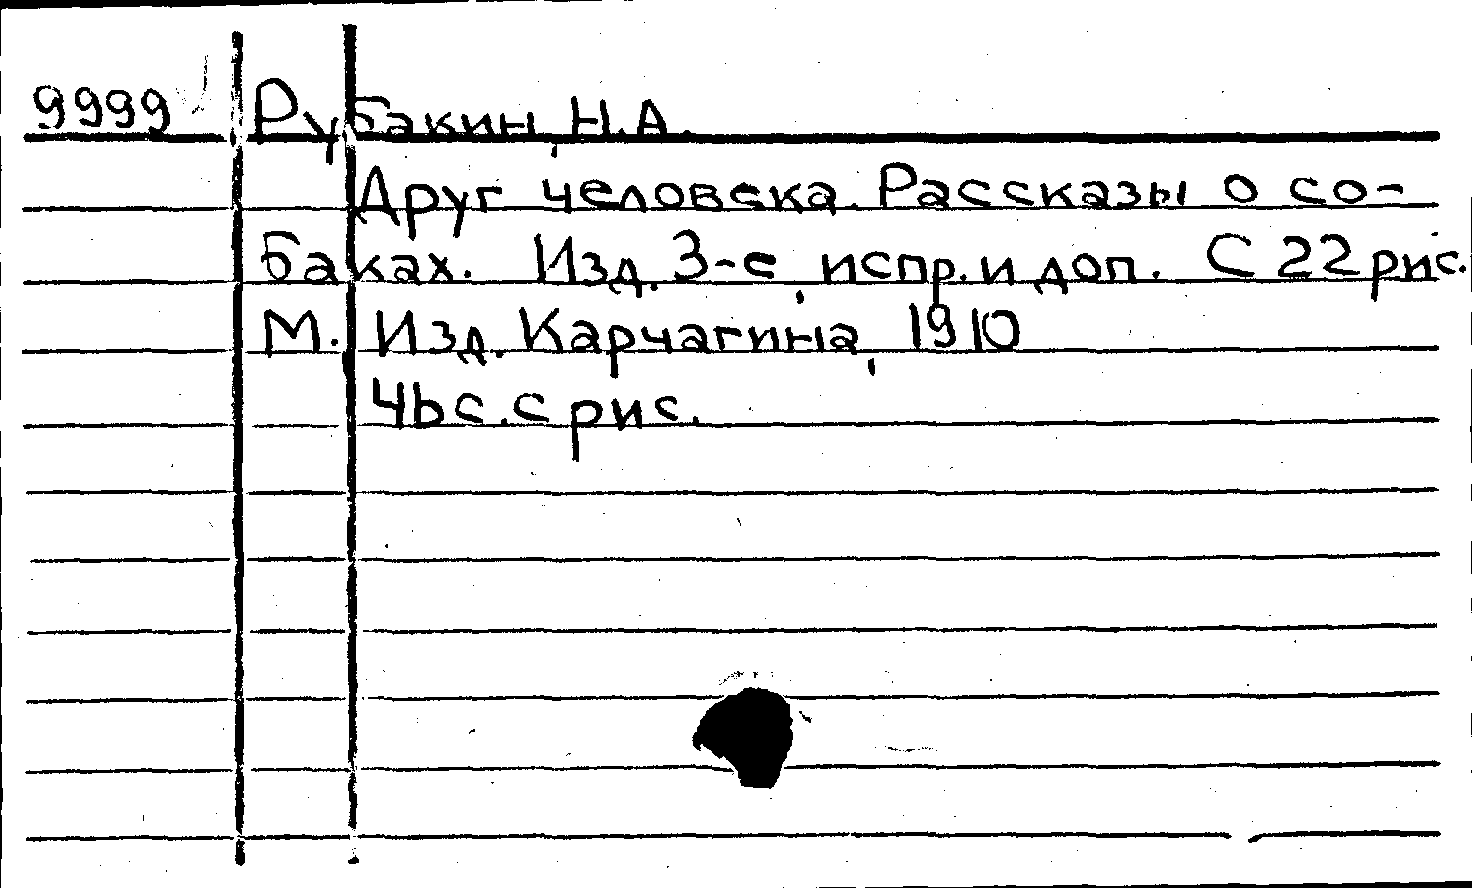 9999 Рубакин, Н.А.
Друг человека. Рассказы о со-
баках. Изд. 3-е, испр. и доп. С 22 рис.
М. Изд. Карчагина, 1910
46 с. с рис.